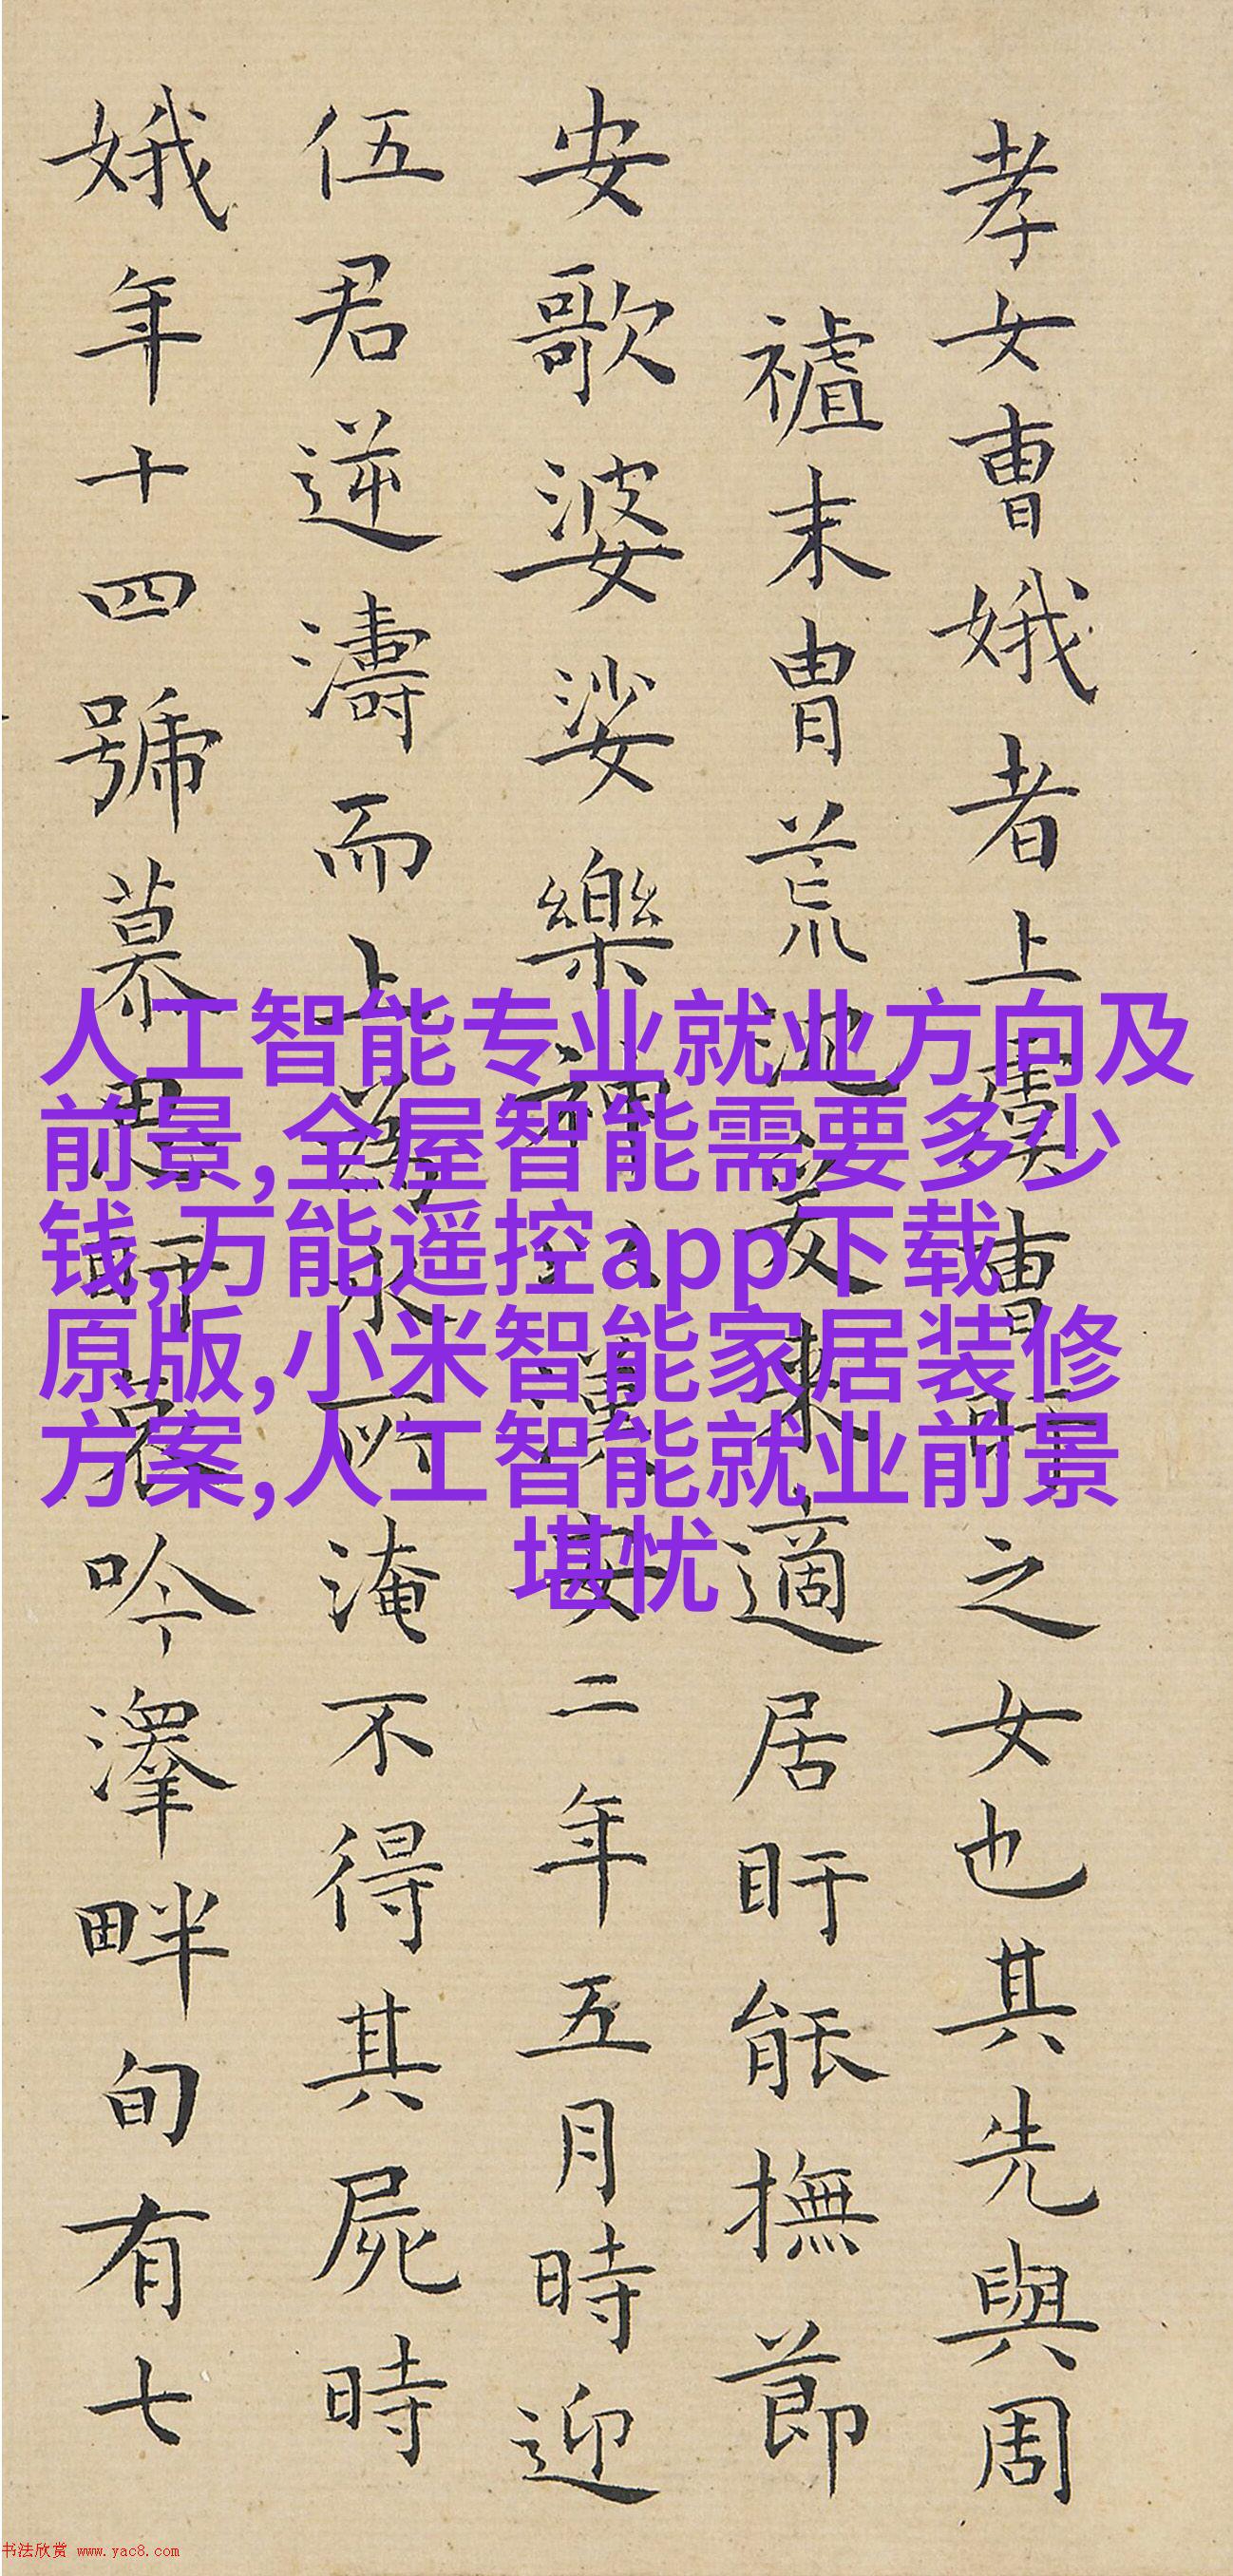 孝女曹娥者上虞曹盱之女也其先與周
末胄荒沈爰來適居盱能撫節
安歌婆娑樂神以漢安二年五月時迎
伍君逆濤而上為水所淹不得其屍時
娥年十四號慕思盱哀吟澤畔旬有七
人工智能专业就业方向及
前景,全屋智能需要多少
钱,万能遥控app下载
原版,小米智能家居装修
方案,人工智能就业前景
堪忧
书法欣赏 www.yac8.com